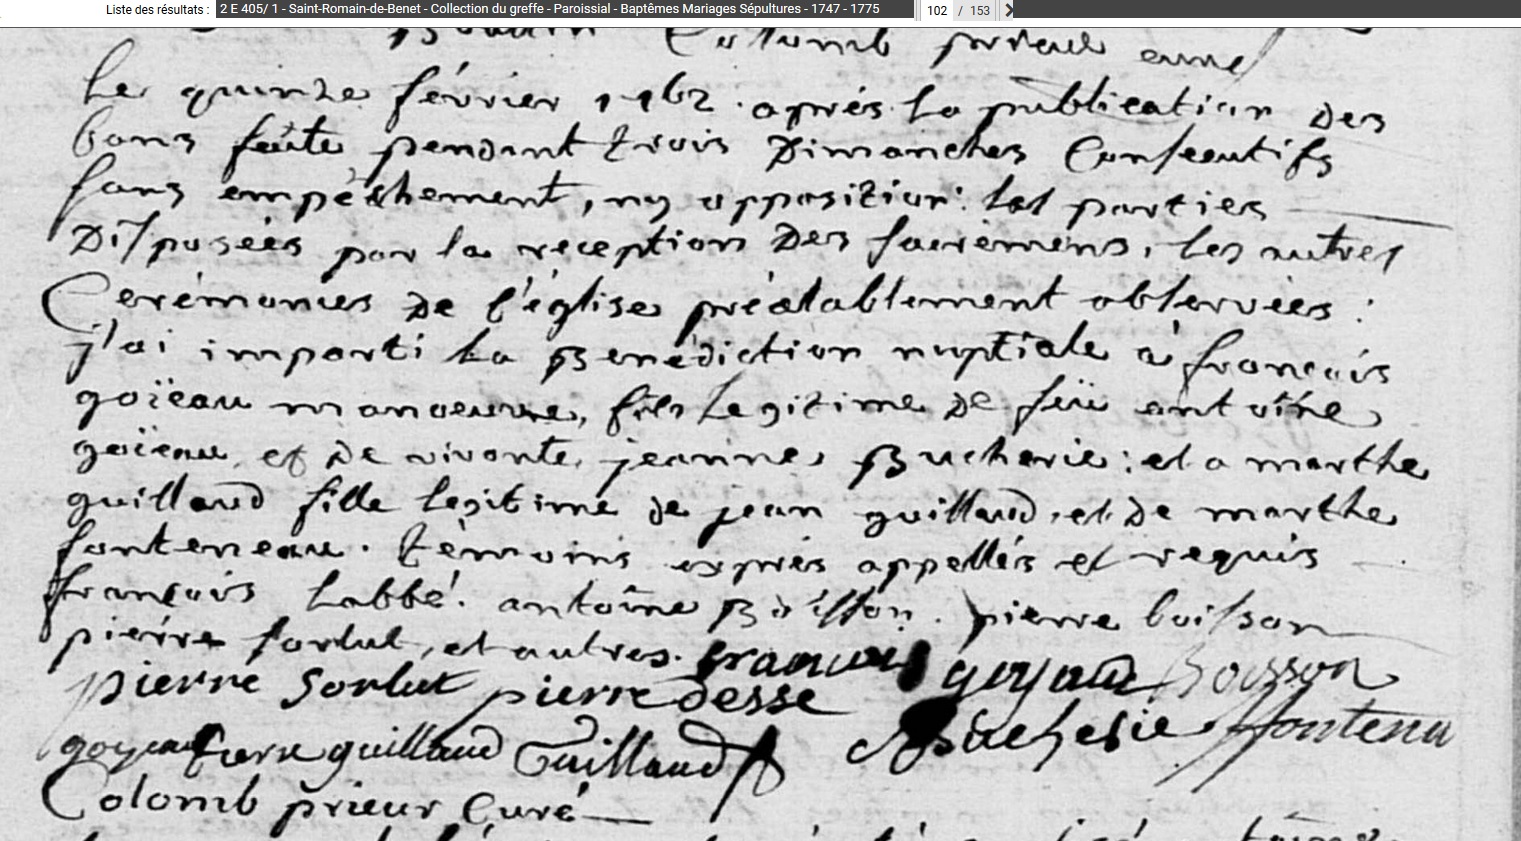 Liste des résultats : 2 E 405/ 1 - Saint-Romain-de-Benet - Collection du greffe - Paroissial - Baptêmes Mariages Sépultures - 1747 - 1775 102 / 153
Colomb prieur curé
Le quinze février 1762 . aprés la publication Des
bans faite pendant trois Dimanches Consecutifs
sans empêchement, ny opposition : les parties
Disposées par la reception Des sacremens, les autres
Cerémonies De l'église préalablement observées :
j'ai imparti la Benédiction nuptiale à françois
goïeau manoeuvre, fils legitime De feü antoine
goïeau et De vivante jeanne Bucherie : et a marthe
guillaud fille legitime de jean guillaud, et De marthe
fonteneau . témoins exprés appellés et requis
françois Labbé . antoine Boisson . pierre boisson
pierre sorlut, et autres . francois goyaud Boisson
pierre Sorlut pierre desse
goyeau pierre guillaud Guillaud Bucherie fontenu
Colomb prieur Curé